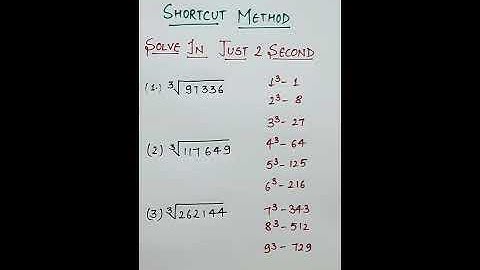 SHORTCUT METHOD
SOLVE IN JUST 2 SECOND
(1.) ∛97336
(2) ∛117649
(3) ∛262144
1³- 1
2³- 8
3³- 27
4³- 64
5³- 125
6³- 216
7³- 343
8³- 512
9³- 729